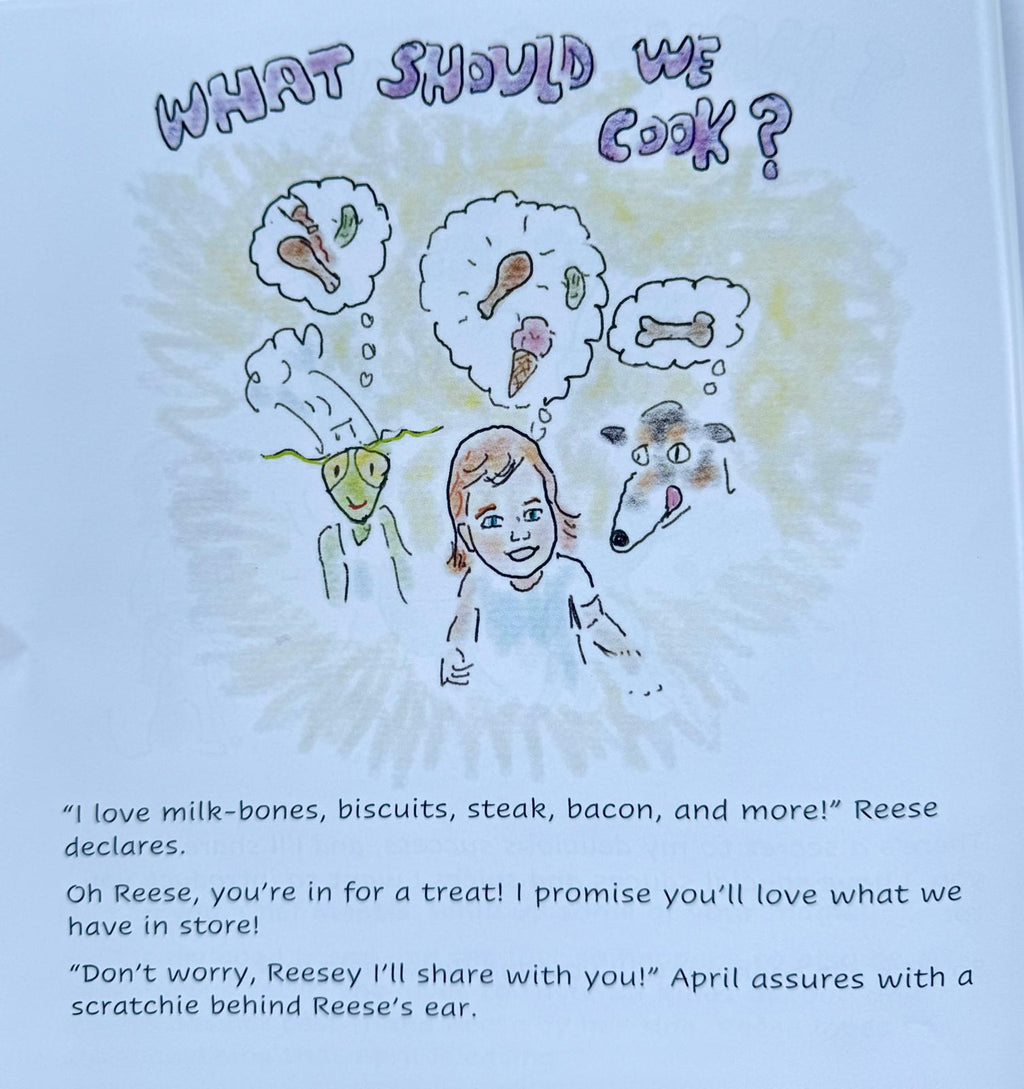 WHAT SHOULD WE
COOK?
“I love milk-bones, biscuits, steak, bacon, and more!” Reese
declares.
Oh Reese, you’re in for a treat! I promise you’ll love what we
have in store!
“Don’t worry, Reesey I’ll share with you!” April assures with a
scratchie behind Reese’s ear.